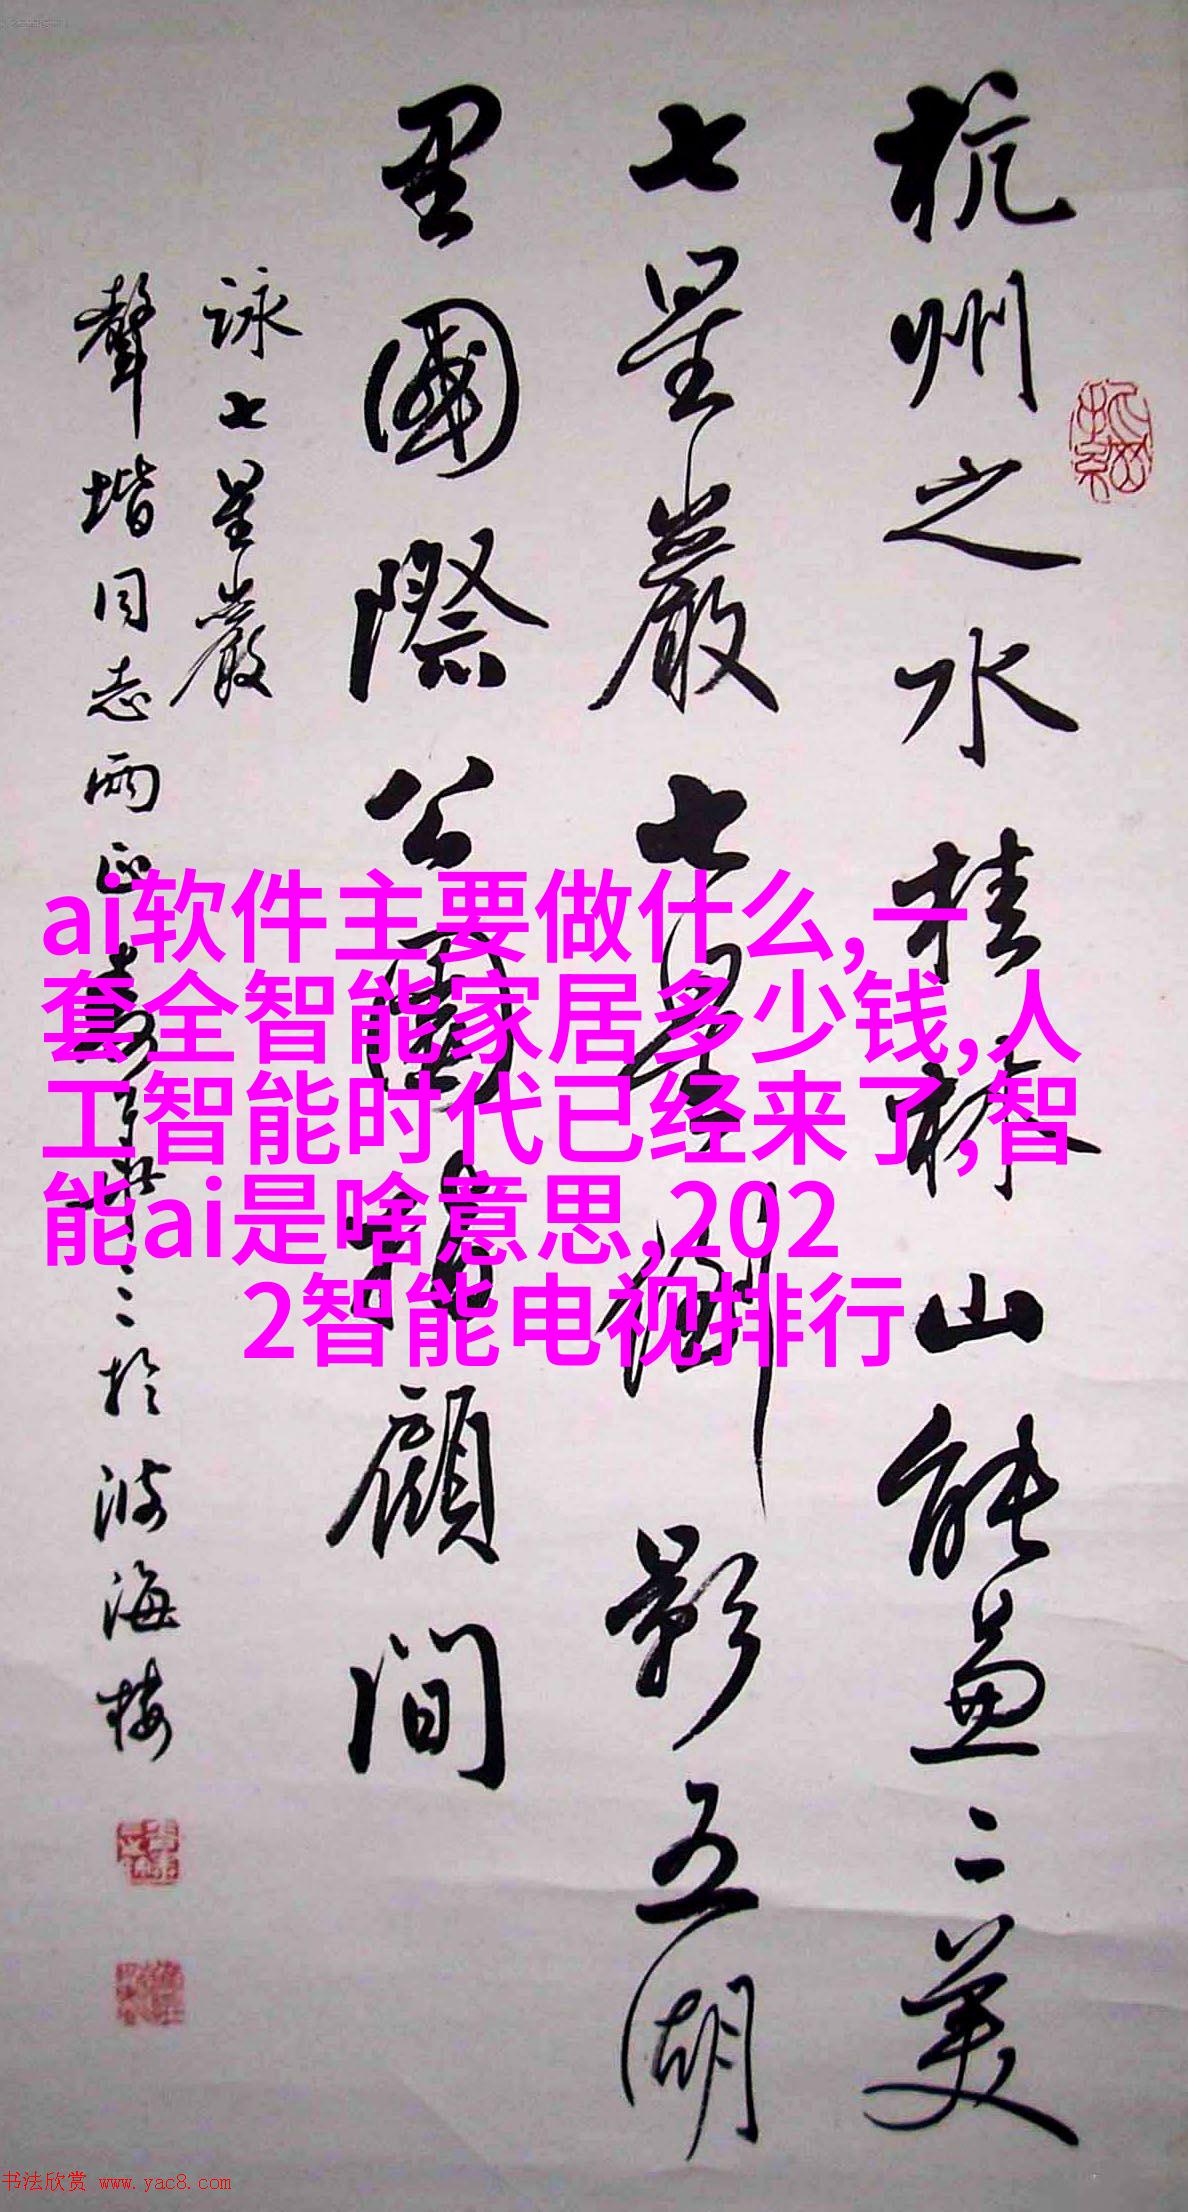 杭州之水桂林山能兼二美
七星巖七星湖影五湖
里國際公園指顧間
詠七星巖
聲堦同志兩正
於波海樓
ai软件主要做什么,一
套全智能家居多少钱,人
工智能时代已经来了,智
能ai是啥意思,202
2智能电视排行
书法欣赏 www.yac8.com